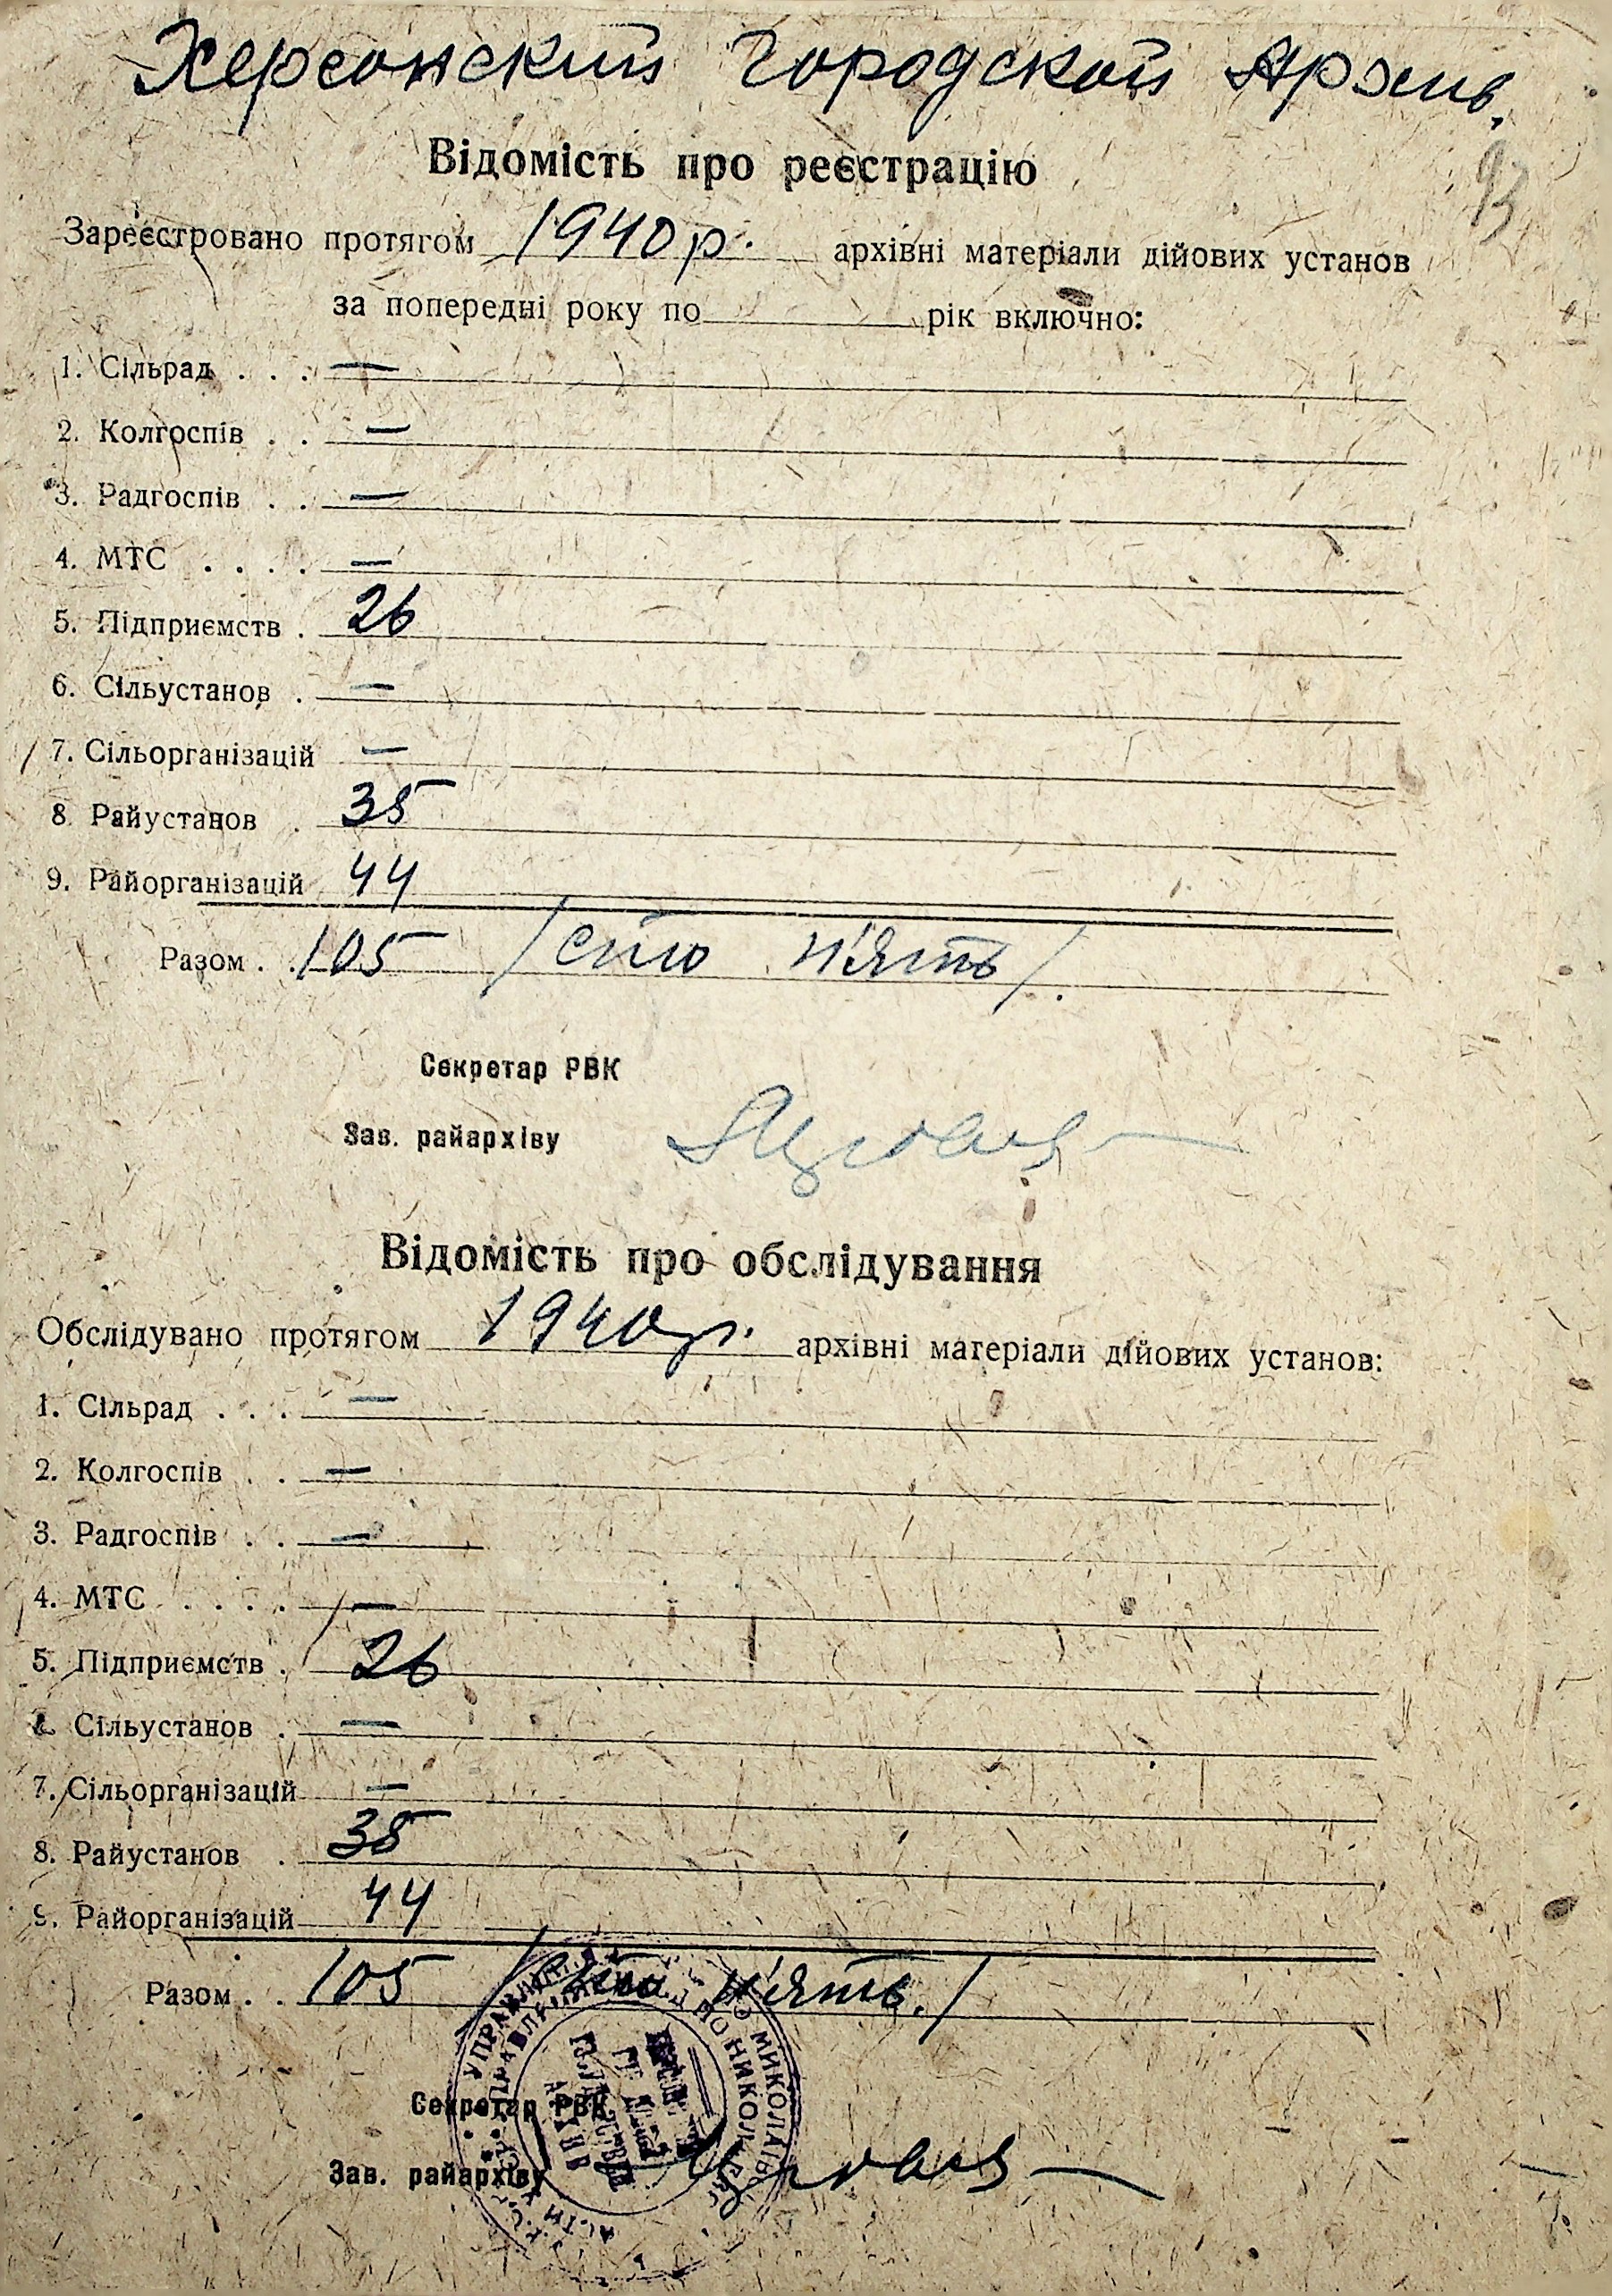 Херсонский Городской Архив.
93
Відомість про реєстрацію
Зареєстровано протягом 1940 р. архівні матеріали дійових установ
за попередні року по рік включно:
1. Сільрад . . . —
2. Колгоспів . . —
3. Радгоспів . . —
4. МТС . . . . —
5. Підприємств . 26
6. Сільустанов . —
7. Сільорганізацій —
8. Райустанов . 35
9. Райорганізацій 44
Разом . . 105 /сто п'ять/.
Секретар РВК
Зав. райархіву
Відомість про обслідування
Обслідувано протягом 1940 р. архівні матеріали дійових установ:
1. Сільрад . . . —
2. Колгоспів . . —
3. Радгоспів . . —
4. МТС . . . . —
5. Підприємств . 26
6. Сільустанов . —
7. Сільорганізацій —
8. Райустанов . 35
9. Райорганізацій 44
Разом . . 105 /сто п'ять./
Секретар РВК
Зав. райархіву